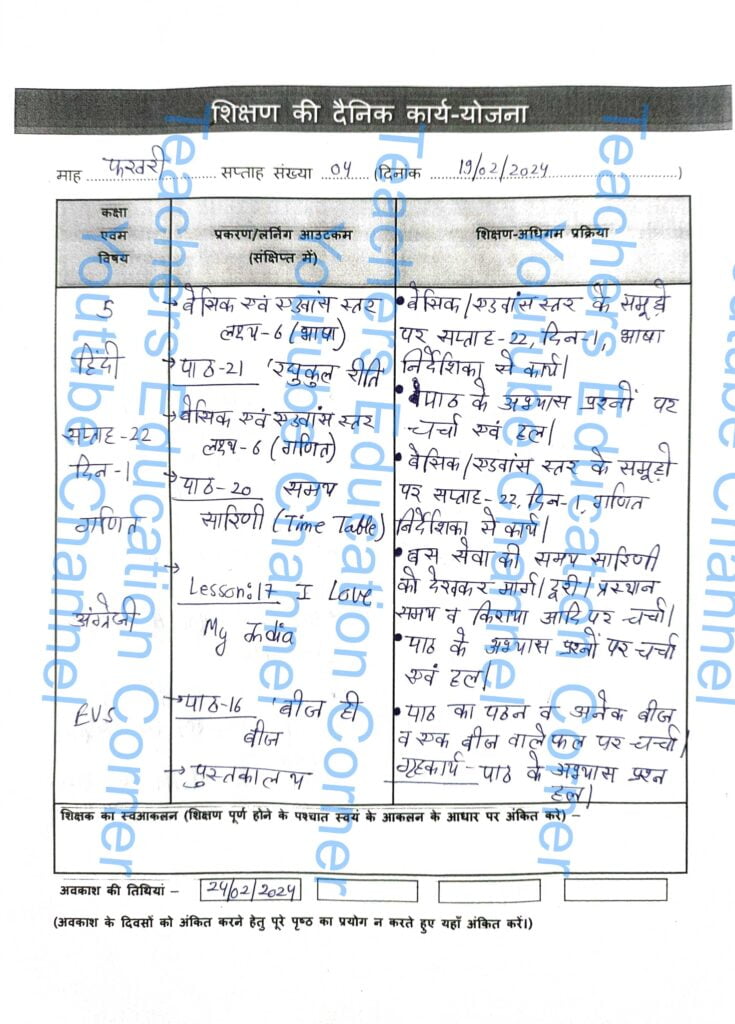 शिक्षण की दैनिक कार्य-योजना
माह फरवरी सप्ताह संख्या 04 (दिनांक 19/02/2024)
कक्षा
एवम
विषय
प्रकरण/लर्निंग आउटकम
(संक्षिप्त में)
शिक्षण-अधिगम प्रक्रिया
5
हिंदी
सप्ताह-22
दिन-1
गणित
अंग्रेजी
EVS
→ बेसिक एवं एडवांस स्तर
लक्ष्य-6 (भाषा)
→ पाठ-21 'रघुकुल रीति
→ बेसिक एवं एडवांस स्तर
लक्ष्य-6 (गणित)
→ पाठ-20 समय
सारिणी (Time Table)
→ Lesson:17 I Love
My India
→ पाठ-16 'बीज ही
बीज
→ पुस्तकालय
• बेसिक/एडवांस स्तर के समूहों
पर सप्ताह-22, दिन-1, भाषा
निर्देशिका से कार्य।
• पाठ के अभ्यास प्रश्नों पर
चर्चा एवं हल।
• बेसिक/एडवांस स्तर के समूहों
पर सप्ताह-22, दिन-1, गणित
निर्देशिका से कार्य।
• बस सेवा की समय सारिणी
को देखकर मार्ग/दूरी/प्रस्थान
समय व किराया आदि पर चर्चा।
• पाठ के अभ्यास प्रश्नों पर चर्चा
एवं हल।
• पाठ का पठन व अनेक बीज
व एक बीज वाले फल पर चर्चा।
गृहकार्य - पाठ के अभ्यास प्रश्न
हल।
शिक्षक का स्वआकलन (शिक्षण पूर्ण होने के पश्चात स्वयं के आकलन के आधार पर अंकित करें) –
अवकाश की तिथियां – 24/02/2024
(अवकाश के दिवसों को अंकित करने हेतु पूरे पृष्ठ का प्रयोग न करते हुए यहाँ अंकित करें।)
Teachers Education Corner
Youtube Channel
Teachers Education Corner
Youtube Channel
Teachers Education Corner
Youtube Channel